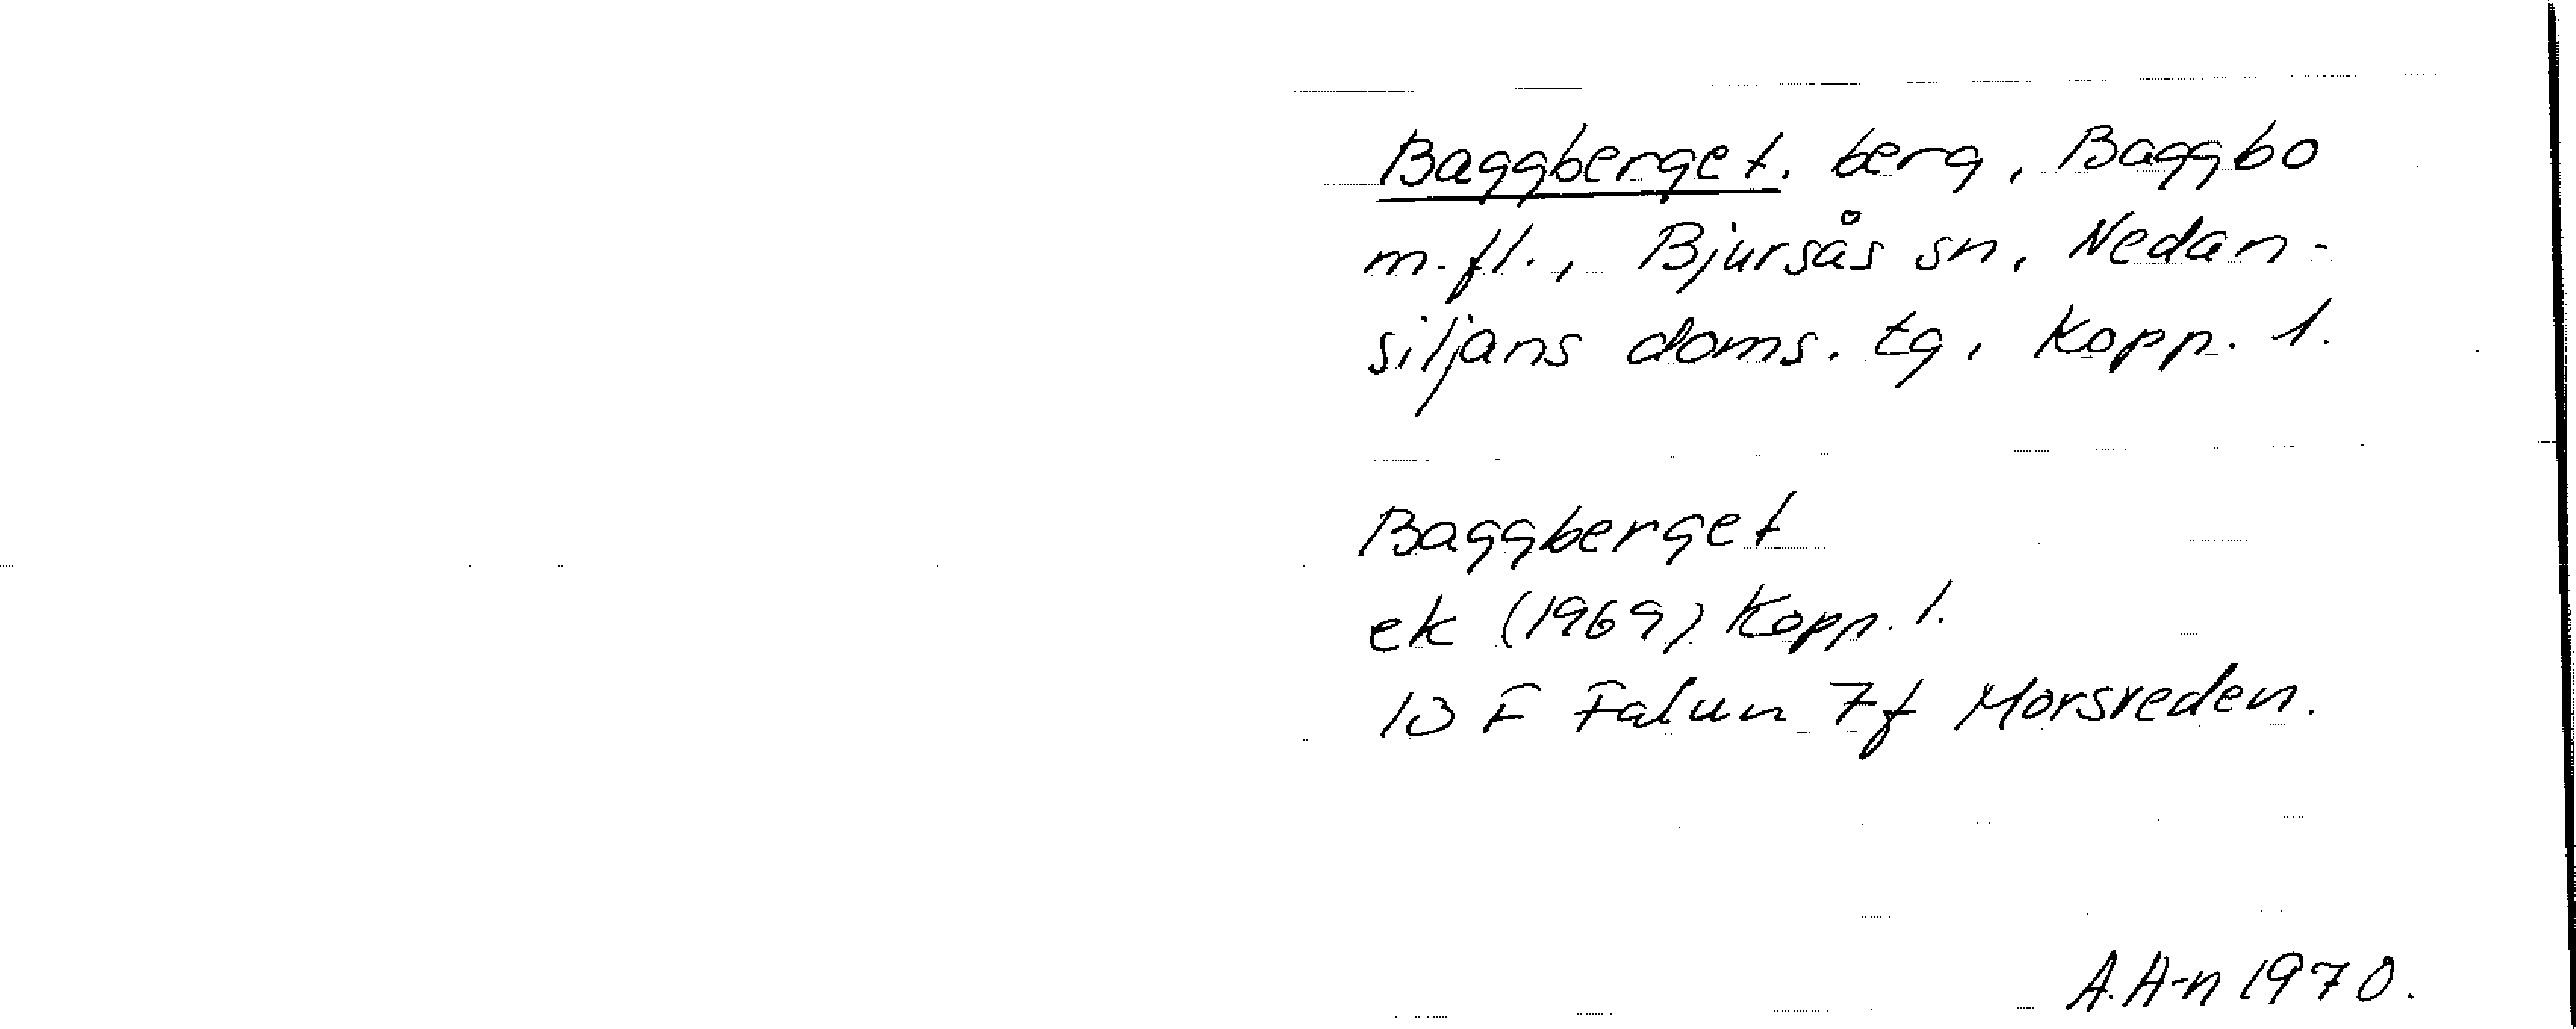 Baggberget. berg, Baggbo
m.fl., Bjursås sn, Nedan-
siljans doms. tg, Kopp. l.
Baggberget
ek (1969) Kopp. l.
13 F Falun 7f Morsveden.
A.A-n 1970.